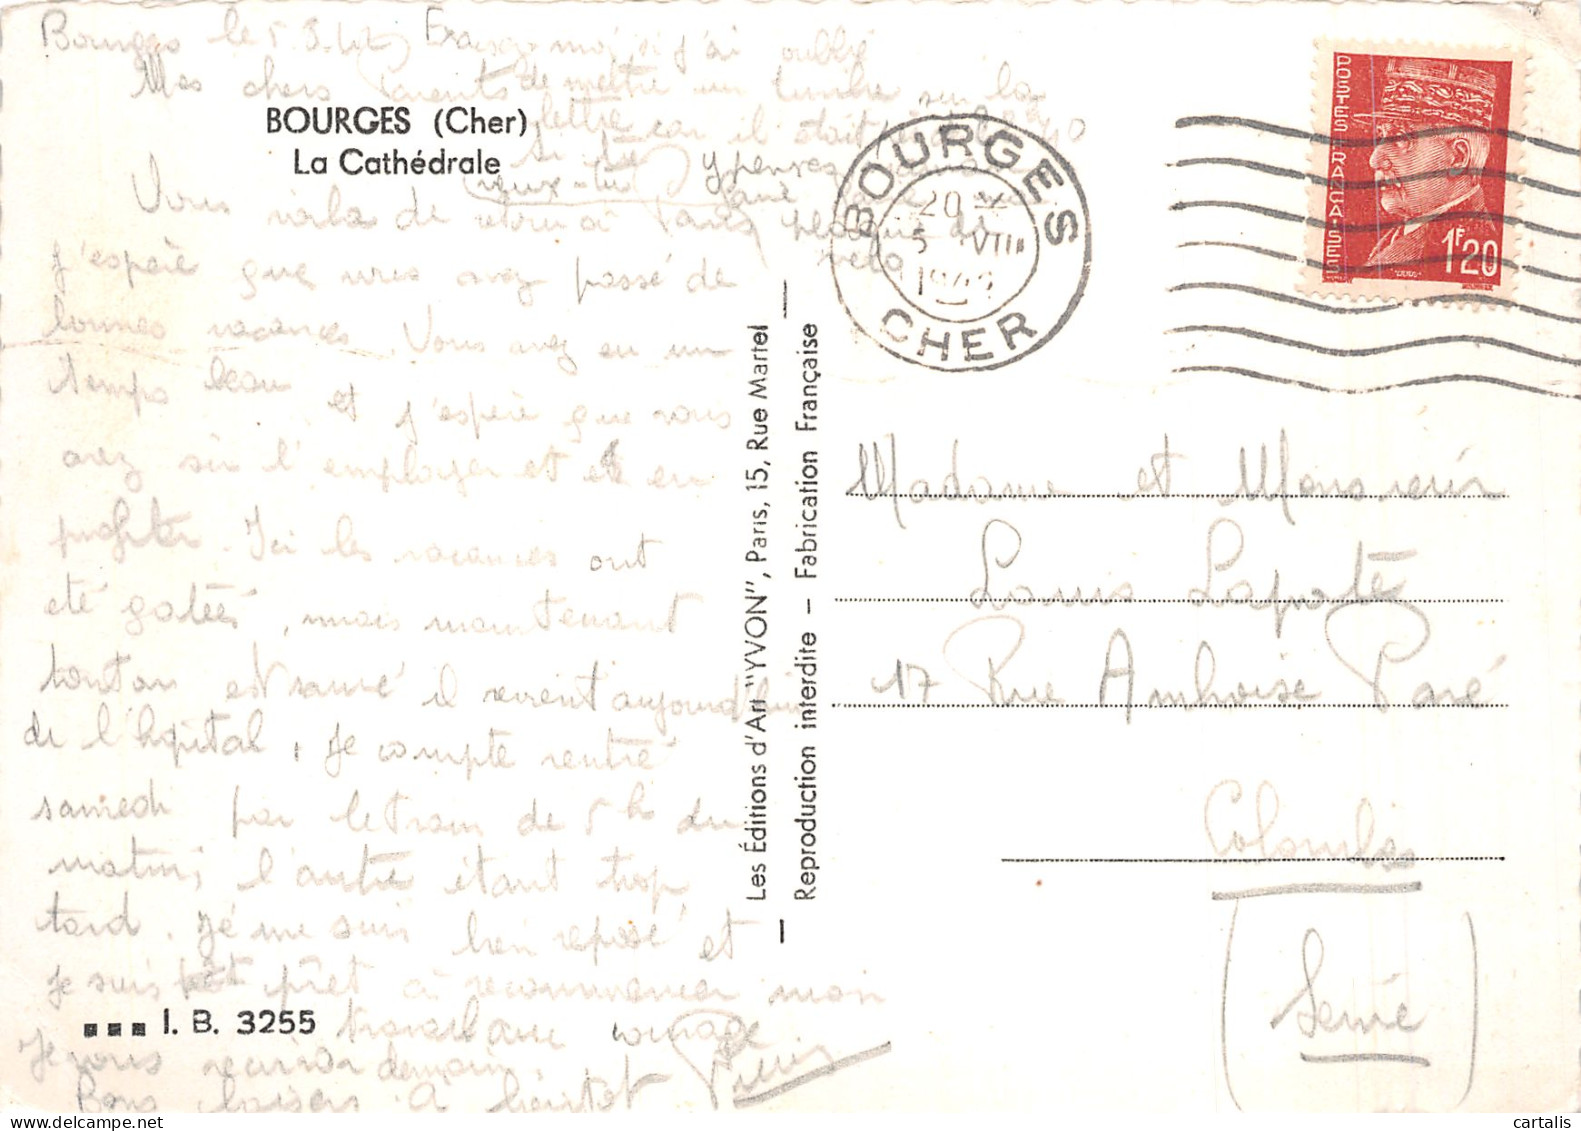 Bourges le 5.3.42 Excusez-moi si j'ai oublié
Mes chers Parents de mettre un timbre sur la
lettre car il était
BOURGES (Cher)
La Cathédrale
si tu y penses
veux-tu
Vous voila de retour à Paris plaque de
vélo
j'espère que vous avez passé de
bonnes vacances. Vous avez eu un
temps beau et j'espère que vous
avez su l'employer et en
profiter. Ici les vacances ont
été gatées, mais maintenant
tonton est sauvé il revient aujourd'hui
de l'hôpital. Je compte rentré
samedi par le train de 5h du
matin, l'autre étant trop
tard. Je me suis bien reposé et
je suis prêt à recommencer mon
travail avec courage
I. B. 3255
Je vous recrirai demain.
Bons baisers. A bientot
BOURGES
20 H
5 VIII
1942
CHER
POSTES FRANÇAISES
1F20
Les Éditions d'Art "YVON", Paris, 15, Rue Martel
Reproduction interdite — Fabrication Française
Madame et Monsieur
Louis Lapoté
17 Rue Ambroise Paré
Colombes
(Seine)
cartalis